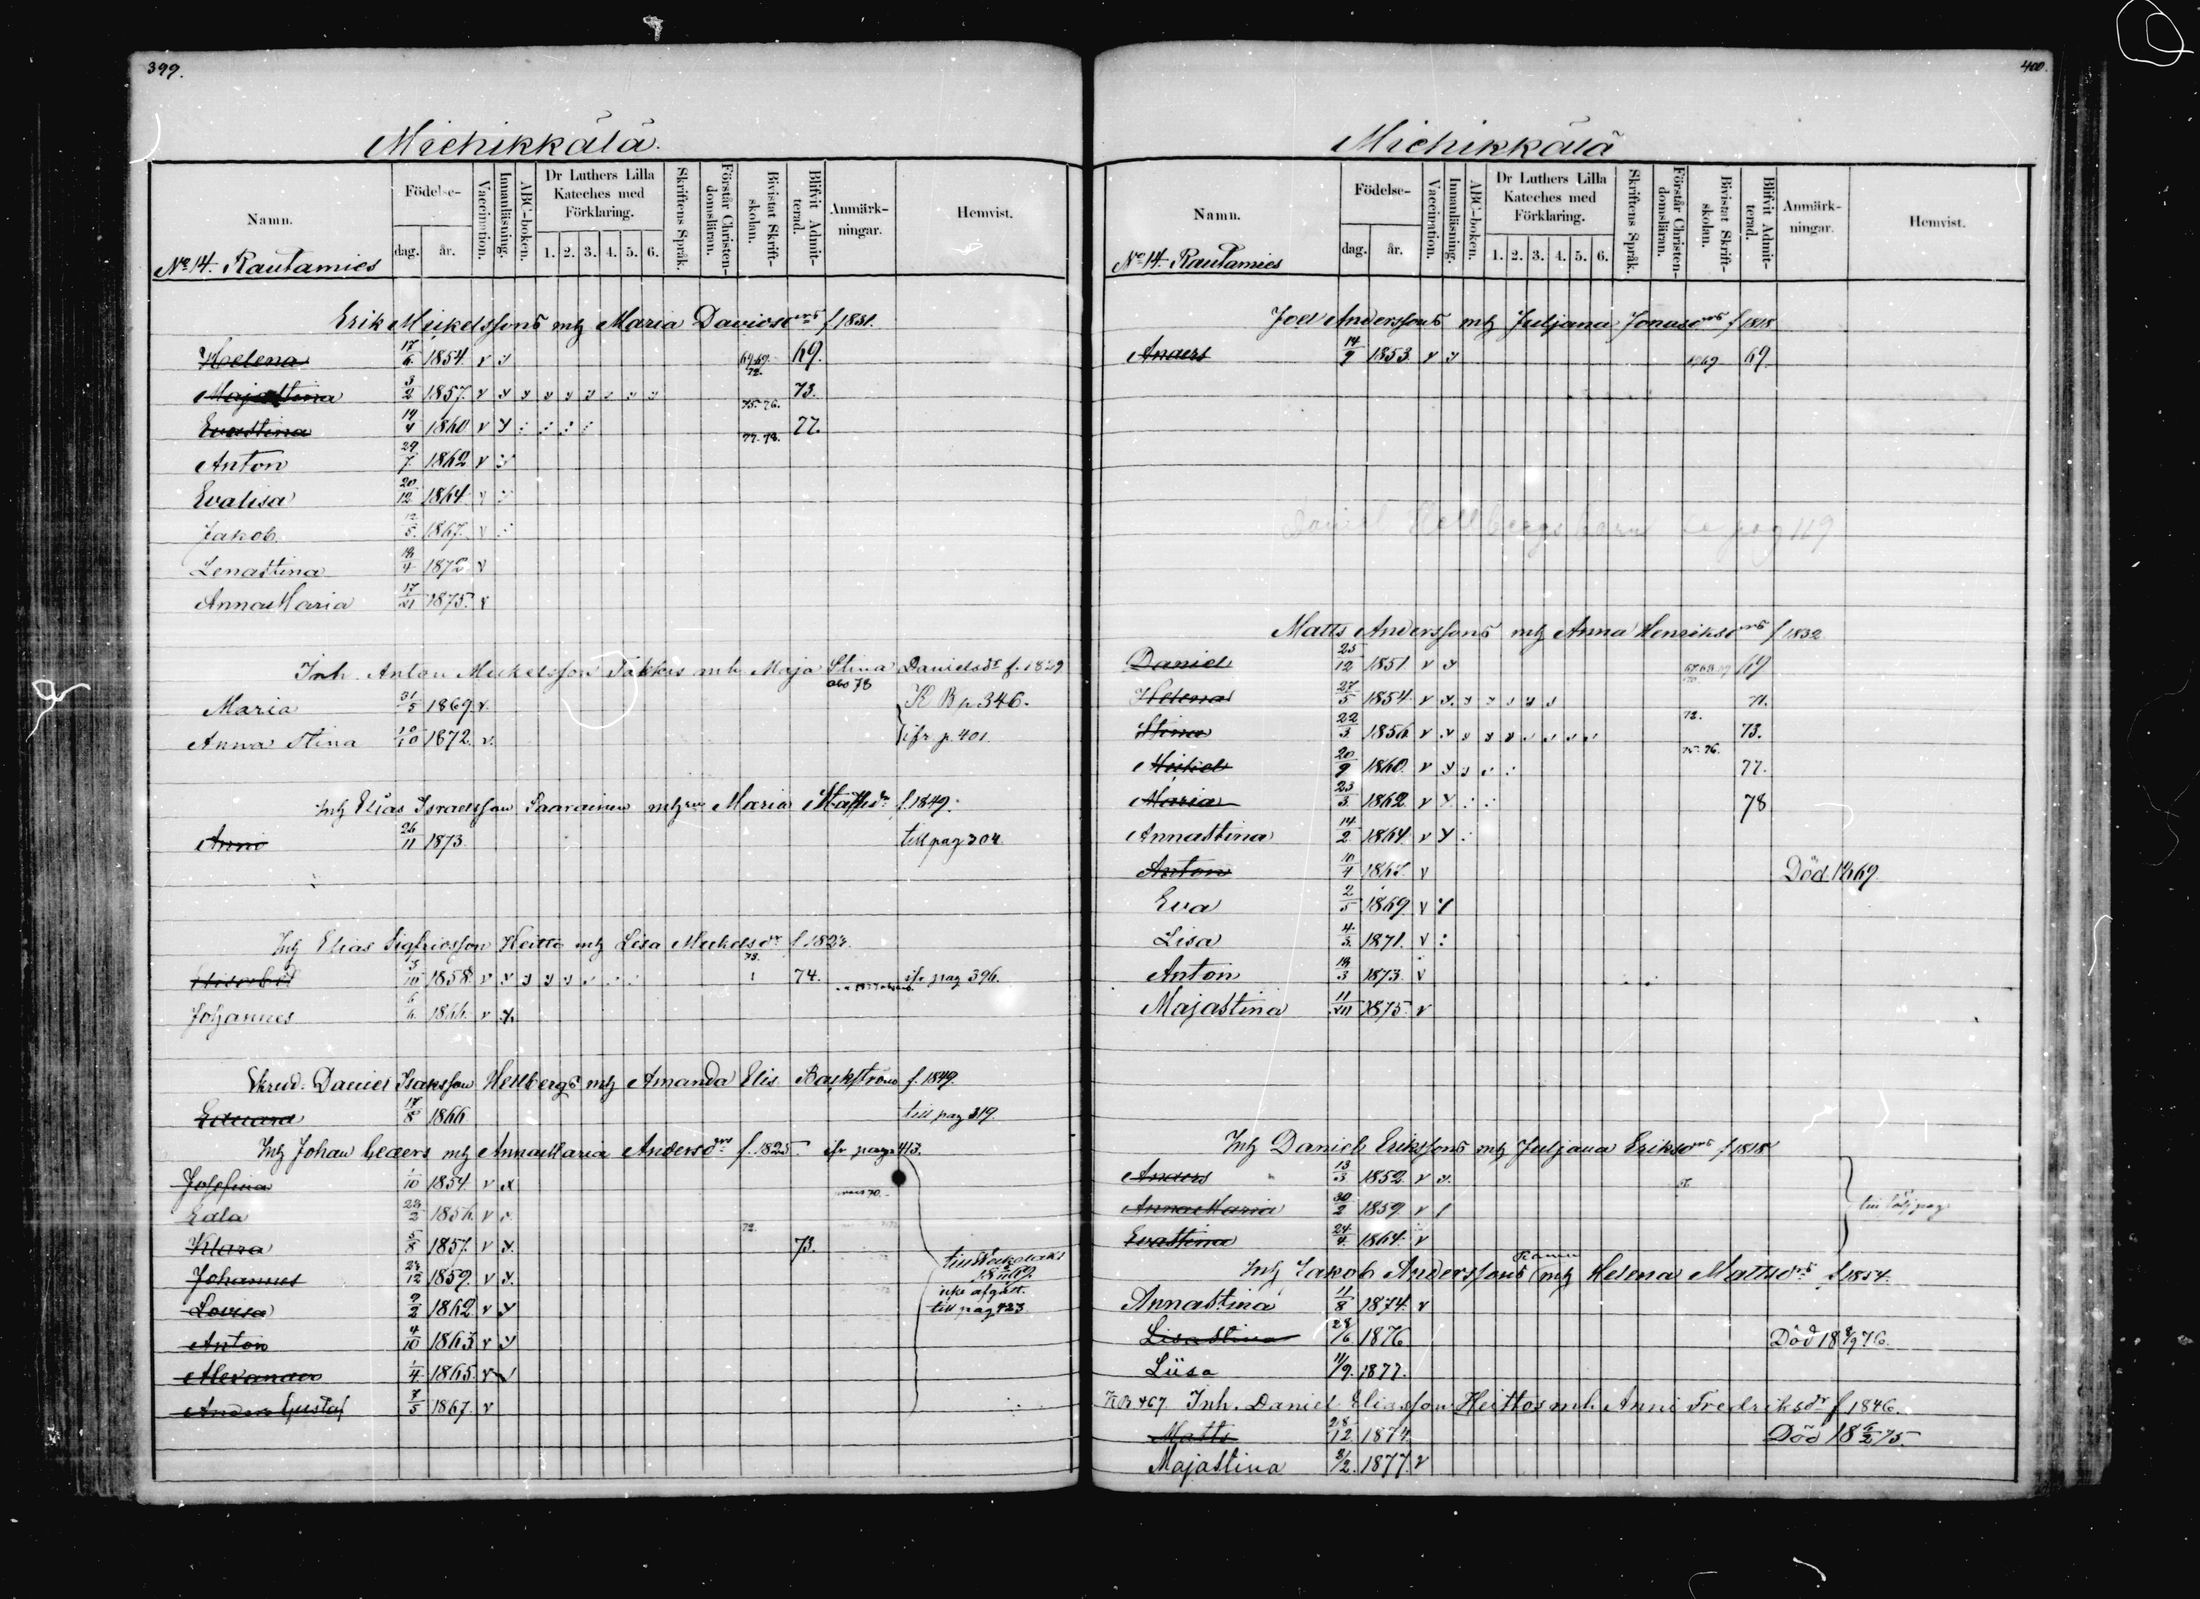 399.
Michikkälä.
Namn. Födelse- dag. år. Vaccination. Innanläsning. ABC-boken. Dr Luthers Lilla Kateches med Förklaring. 1. 2. 3. 4. 5. 6. Skriftens Språk. Förstår Christendomsläran. Bivistat Skriftskolan. Blifvit Admitterad. Anmärkningar. Hemvist.
No 14. Rautamies
Erik Meikelssons mh Maria Davidsdrs f 1831.
Helena 17/6 1854. v y 69. 72. 69.
Majastina 3/2 1857. v y y y y y 75. 76. 73.
Evastina 19/4 1860 v y : : : : 77. 78. 77.
Anton 29/7 1862 v
Evalisa 20/12 1864
Jakob 5. 1867. v
Lenastina 18/4 1872 v
AnnaMaria 17/21 1875. v
Inh. Anton Mickelsson mh Maja Stina Danielsdr f. 1829
Maria 31/5 1869 v. K B p. 346.
Anna Stina 10/10 1872. v. jfr p. 401.
Inh Elias Israelsson Saarainen Maria Mattsdr f. 1849.
Anni 26/11 1873. till pag 304.
Inh Elias Sigfridsson Heitto mh Lisa Mickelsdr
3/10 1858. v v y y y 73. 74. jfr pag 396.
Johannes 6/6. 1866. v y.
Daniel Isaksson Hellbergs mh Amanda Elis. Backström f. 1849.
Eduard 17/8 1866. till pag 319.
Inh Johan Ceders mh AnnaMaria Andersdrs f. 1825. jfr pag 413.
Josefina 1/10 1854. v x
Edla 28/2 1856. v 72.
Klara 5/8 1857. v y. 73.
Johannes 28/12 1859. v y.
Lovisa 9/2 1862 v y till pag 423
Anton 4/10 1863 v y
Alexander 1/4 1865. v
Anders Gustaf 7/5 1867. v
400.
Michikkälä
Namn. Födelse- dag. år. Vaccination. Innanläsning. ABC-boken. Dr Luthers Lilla Kateches med Förklaring. 1. 2. 3. 4. 5. 6. Skriftens Språk. Förstår Christendomsläran. Bivistat Skriftskolan. Blifvit Admitterad. Anmärkningar. Hemvist.
No 14. Rautamies
Joel Anderssons mh Juljana Jonasdrs f 1818
Anders 14/9 1853. v y 1869 69.
Daniel Hellbergs barn se pag 119
Matts Anderssons mh Anna Henriksdrs f 1832
Daniel 25/12 1851 v y 69
Helena 27/5 1854. v y. y y y y y 71.
Stina 22/3 1856 v y y y y 72. 73.
Meikel 20/9 1860. v y y 75. 76. 77.
Maria 23/3 1862 v y : : 78
Annastina 14/2 1864. v y :
Anton 10/4 1867. v Död 1869.
Eva 2/5 1869. v
Lisa 4/3. 1871. v :
Anton 18/3 1873. v
Majastina 11/11 1875. v
Inh Daniel Erikssons mh Juljana Eriksdrs f 1818
Anders 13/3 1852 v y.
AnnaMaria 30/2 1859. v
Evastina 24/4. 1864. v
Inh Jakob Anderssons mh Helena Mattsdrs f 1854.
Annastina 11/8 1874. v
Lisa Stina 28/6 1876 Död 18 8/9 76.
Liisa 11/9. 1877.
KB 467 Inh. Daniel Eliasson Heittos mh. Anni Fredriksdr f 1846.
Matts 28/12 1874. Död 18 6/2 75.
Majastina 2/2. 1877. v